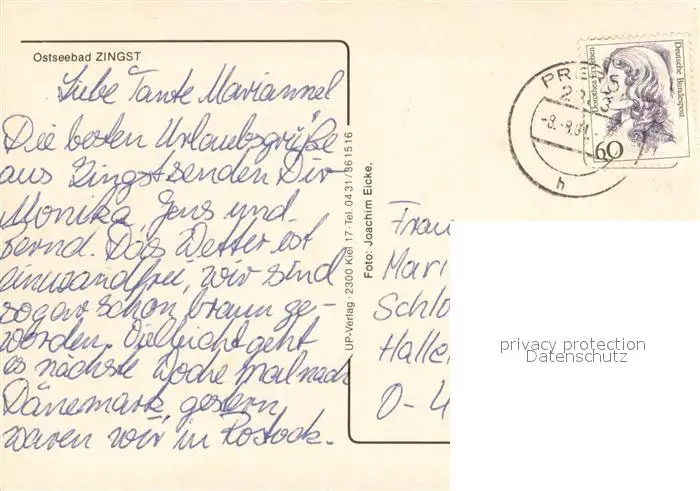 Ostseebad ZINGST
Liebe Tante Marianne!
Die besten Urlaubsgrüße
aus Zingst senden Dir
Monika, Jens und
Bernd. Das Wetter ist
einwandfrei, wir sind
sogar schon braun ge-
worden. Vielleicht geht
es nächste Woche mal nach
Dänemark, gestern
waren wir in Rostock.
UP-Verlag · 2300 Kiel 17 · Tel. 0431/361516
Foto: Joachim Eicke.
Dorothea Erxleben
Deutsche Bundespost
60
PRE
23
-8.-8.91-
h
Frau
Mari
Schlo
Halle
O-4
privacy protection
Datenschutz